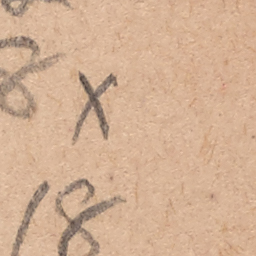 8 x
18